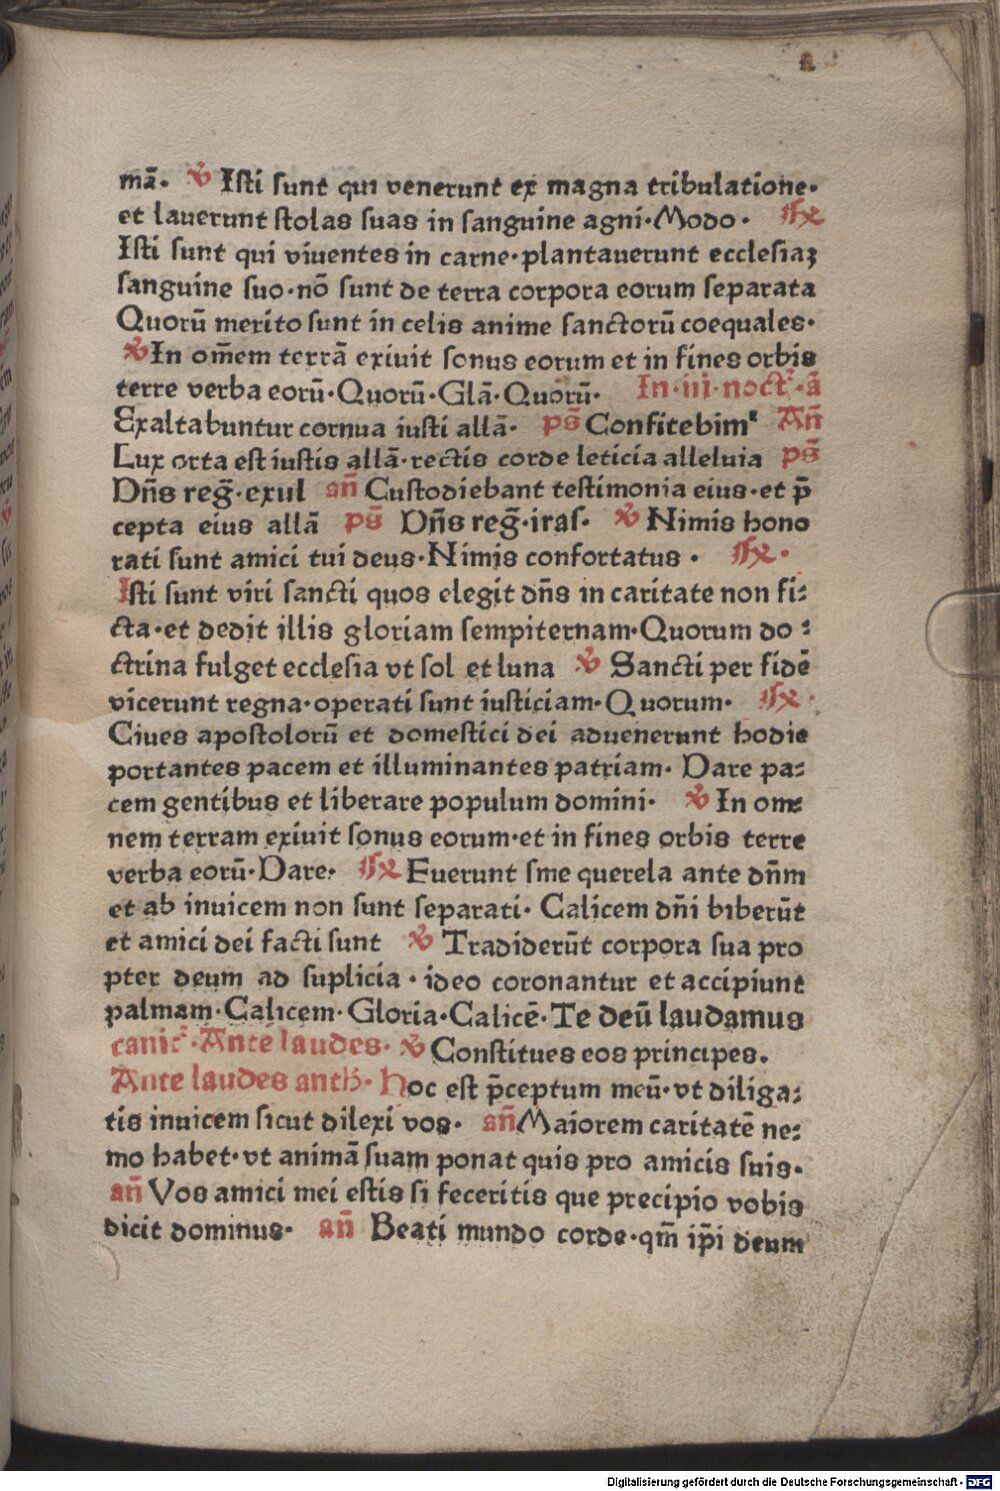 mā. ℣ Isti sunt qui venerunt ex magna tribulatione.
et lauerunt stolas suas in sanguine agni. Modo. ℟
Isti sunt qui viuentes in carne. plantauerunt ecclesiaꝫ
sanguine suo. nō sunt de terra corpora eorum separata
Quorū merito sunt in celis anime sanctorū coequales.
℣ In om̄em terrā exiuit sonus eorum et in fines orbis
terre verba eorū. Quorū. Glā. Quorū. In. iii. noct.ᵒ ā
Exaltabuntur cornua iusti allā. ps̄ Confitebimꝰ An̄
Lux orta est iustis allā. rectis corde leticia alleluia ps̄
Dn̄s reḡ. exul an̄ Custodiebant testimonia eius. et p̄
cepta eius allā ps̄ Dn̄s reḡ. iras. ℣ Nimis hono
rati sunt amici tui deus. Nimis confortatus. ℟.
Isti sunt viri sancti quos elegit dn̄s in caritate non fi:
cta. et dedit illis gloriam sempiternam. Quorum do:
ctrina fulget ecclesia vt sol et luna ℣ Sancti per fidē
vicerunt regna. operati sunt iusticiam. Quorum. ℟.
Ciues apostolorū et domestici dei aduenerunt hodie
portantes pacem et illuminantes patriam. Dare pa:
cem gentibus et liberare populum domini. ℣ In om:
nem terram exiuit sonus eorum. et in fines orbis terre
verba eorū. Dare. ℟ Fuerunt sine querela ante dn̄m
et ab inuicem non sunt separati. Calicem dn̄i biberūt
et amici dei facti sunt ℣ Tradiderūt corpora sua pro
pter deum ad suplicia. ideo coronantur et accipiunt
palmam. Calicem. Gloria. Calicē. Te deū laudamus
canit.ʳ Ante laudes. ℣ Constitues eos principes.
Ante laudes anth. Hoc est p̄ceptum meū. vt diliga:
tis inuicem sicut dilexi vos. an̄ Maiorem caritatē ne:
mo habet. vt animā suam ponat quis pro amicis suis.
an̄ Vos amici mei estis si feceritis que precipio vobis
dicit dominus. an̄ Beati mundo corde. qm̄ ip̄i deum
Digitalisierung gefördert durch die Deutsche Forschungsgemeinschaft - DFG